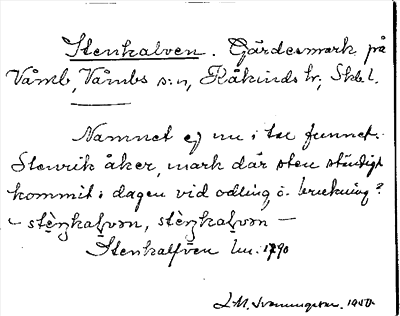 Stenkalven. Gärdesmark på
Våmb, Våmbs s:n, Kåkinds hr, Skbl.
Namnet ej nu i tal funnet.
Stenrik åker, mark där sten ständigt
kommit i dagen vid odling o. brukning?
Stenkalfven lm. 1790
L.M. Svanungson. 1950.